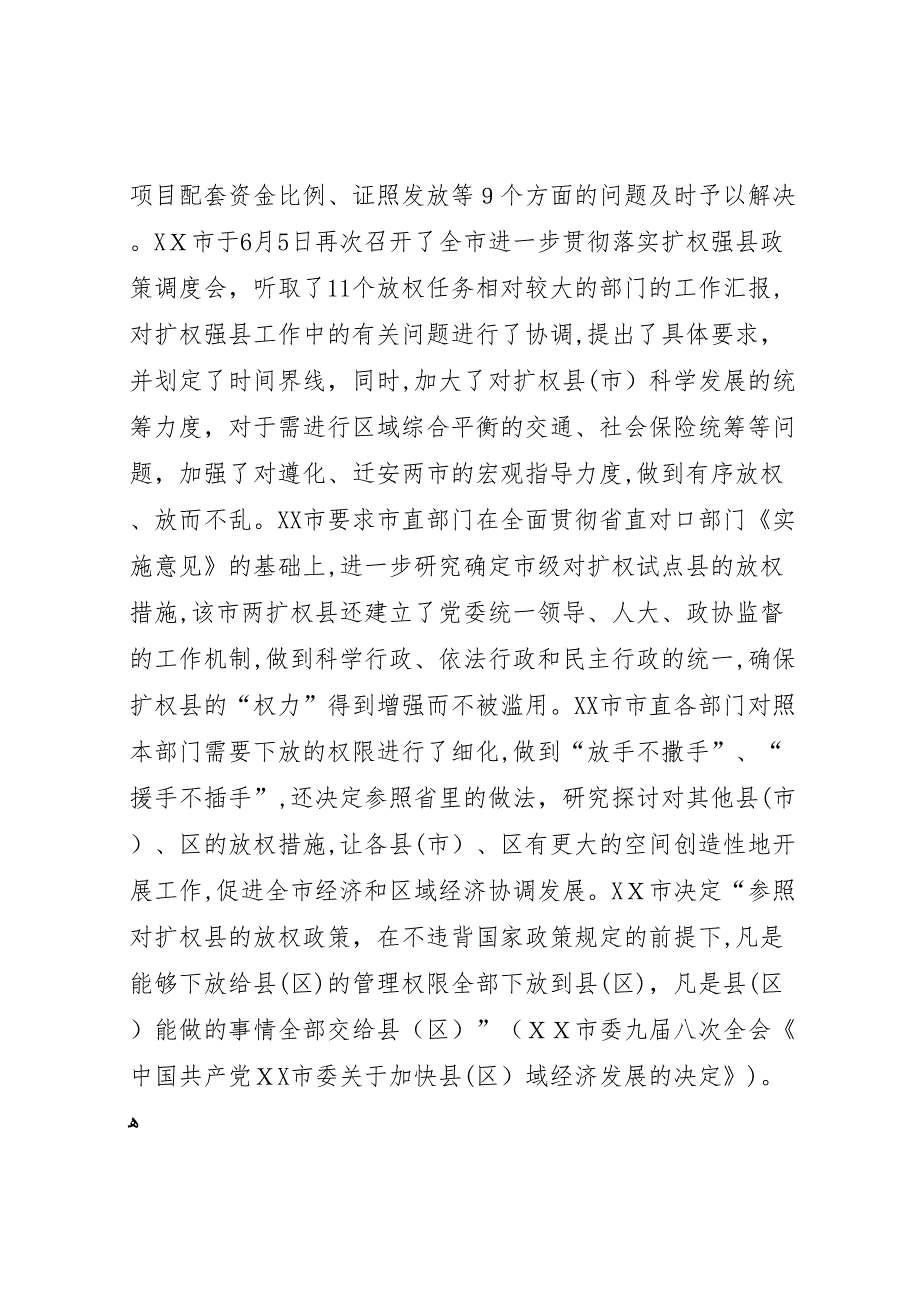 项目配套资金比例、证照发放等 9 个方面的问题及时予以解决
。XＸ市于6月5日再次召开了全市进一步贯彻落实扩权强县政
策调度会，听取了11个放权任务相对较大的部门的工作汇报,
对扩权强县工作中的有关问题进行了协调,提出了具体要求，
并划定了时间界线，同时,加大了对扩权县(市）科学发展的统
筹力度，对于需进行区域综合平衡的交通、社会保险统筹等问
题，加强了对遵化、迁安两市的宏观指导力度,做到有序放权
、放而不乱。XX市要求市直部门在全面贯彻省直对口部门《实
施意见》的基础上,进一步研究确定市级对扩权试点县的放权
措施,该市两扩权县还建立了党委统一领导、人大、政协监督
的工作机制,做到科学行政、依法行政和民主行政的统一,确保
扩权县的“权力”得到增强而不被滥用。XX市市直各部门对照
本部门需要下放的权限进行了细化,做到“放手不撒手”、“
援手不插手”,还决定参照省里的做法，研究探讨对其他县(市
）、区的放权措施,让各县(市）、区有更大的空间创造性地开
展工作,促进全市经济和区域经济协调发展。XＸ市决定“参照
对扩权县的放权政策，在不违背国家政策规定的前提下,凡是
能够下放给县(区)的管理权限全部下放到县(区)，凡是县(区
）能做的事情全部交给县（区）”（ＸＸ市委九届八次全会《
中国共产党ＸX市委关于加快县(区）域经济发展的决定》)。